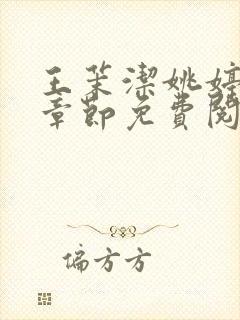 王茉潔姚婷
章節免費閱
偏方方